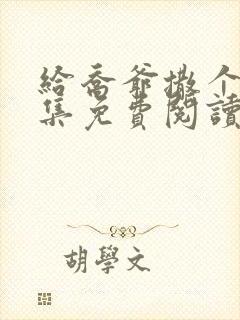 給喬爺撒个
集免費閱讀
胡學文